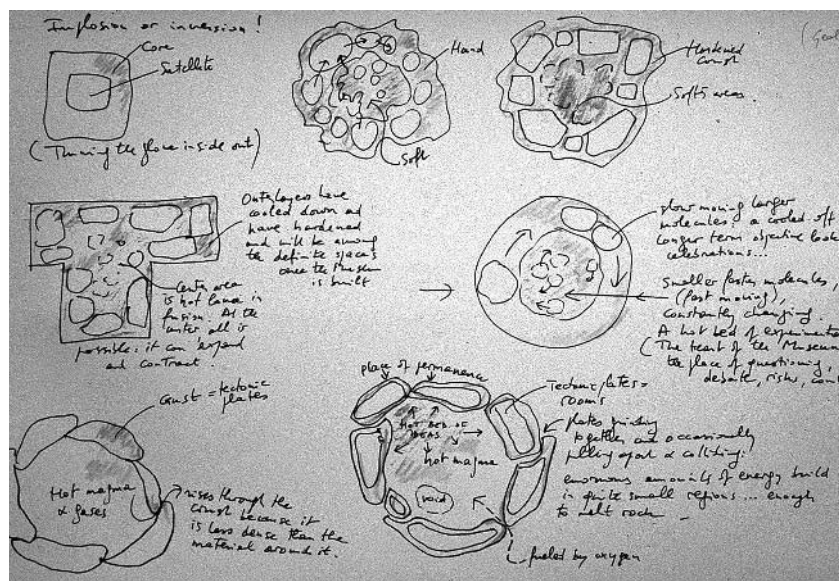 Implosion or inversion!
Core
Satellite
(Turning the glove inside out)
Hard
Soft
Hardened
crust
Soft areas
Outer layers have
cooled down and
have hardened
and will be among
the definite spaces
once the Museum
is built
Center area
is hot lava in
fusion. At the
center all is
possible: it can expand
and contract.
slow moving larger
molecules: a cooled off
longer term objective
celebrations...
Smaller faster molecules,
(fast moving),
constantly changing.
A hot bed of
(The heart of the Museum
the place of questioning,
debate, risks,
crust = tectonic
plates
Hot magma
& gases
rises through the
crust because it
is less dense than the
material around it.
place of permanence
HOT BED OF
IDEAS
hot magma
void
Tectonic plates =
rooms
plates grinding
together and occasionally
pulling apart & colliding.
enormous amounts of energy build
in quite small regions... enough
to melt rock
fueled by oxygen